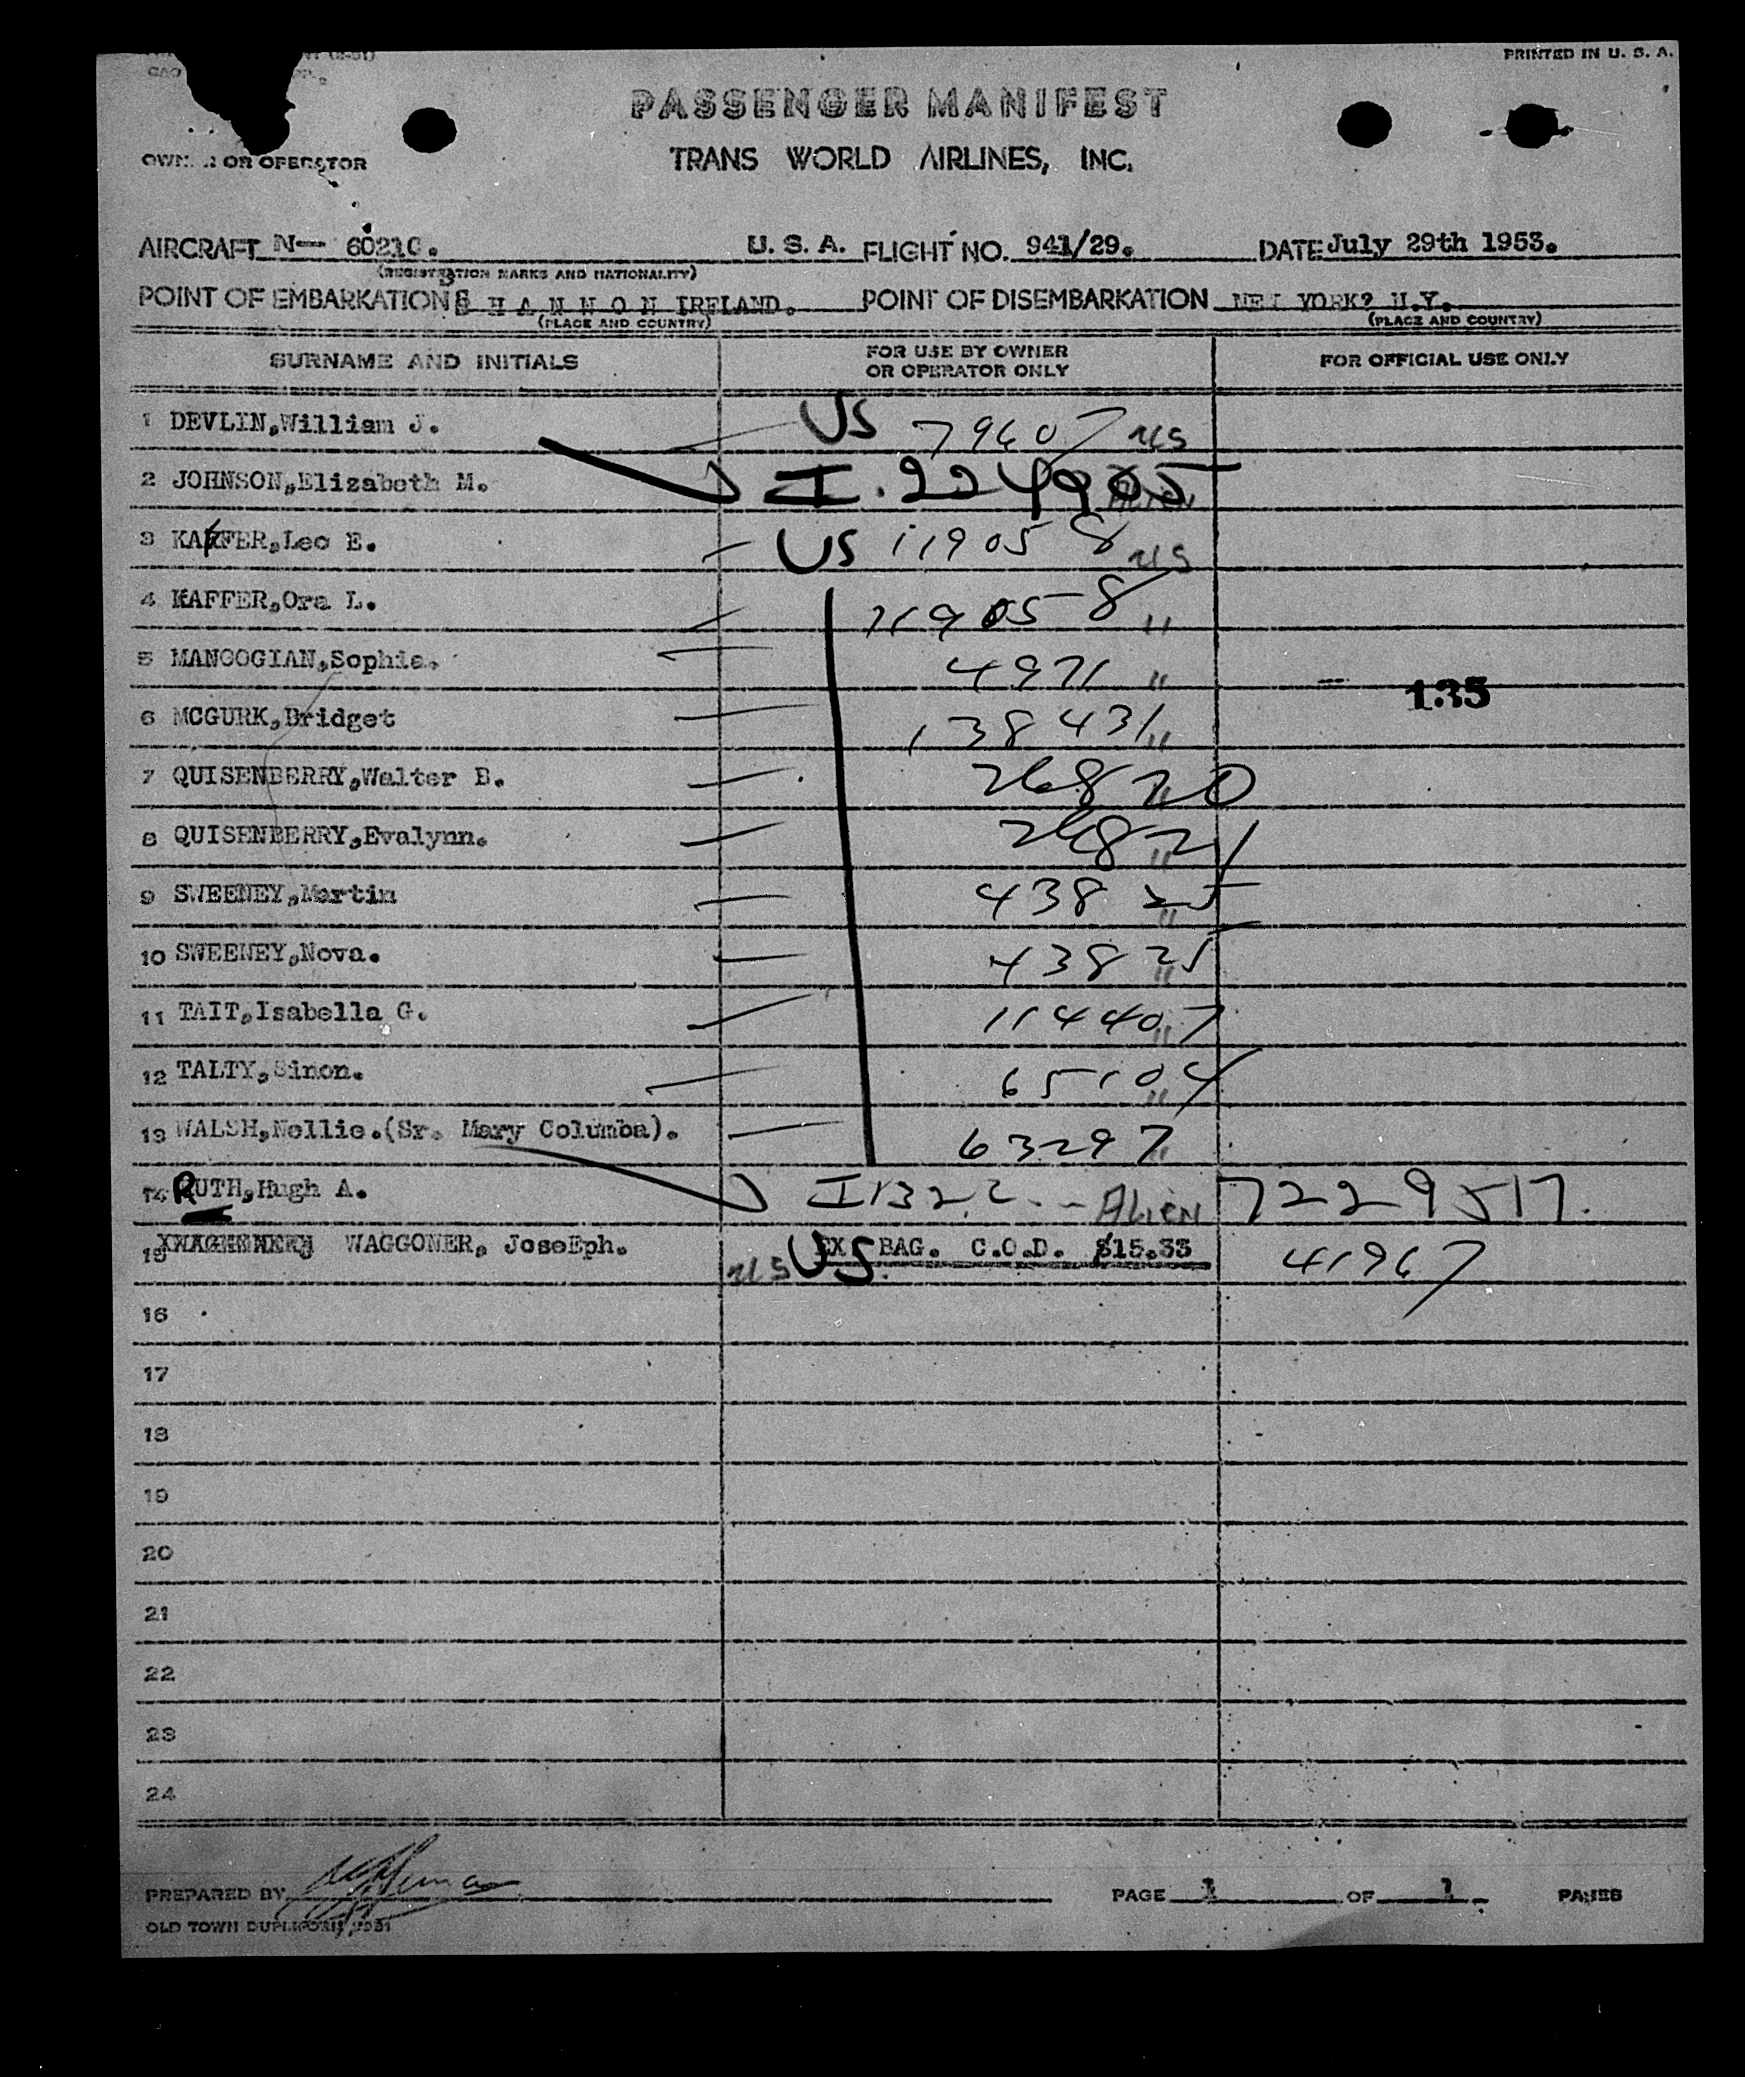 PRINTED IN U. S. A.
PASSENGER MANIFEST
OR OPERATOR
TRANS WORLD AIRLINES, INC.
AIRCRAFT N— 60210. U. S. A. FLIGHT NO. 941/29. DATE July 29th 1953.
(REGISTRATION MARKS AND NATIONALITY)
POINT OF EMBARKATION S H A N N O N IRELAND. POINT OF DISEMBARKATION NEW YORK? N.Y.
(PLACE AND COUNTRY) (PLACE AND COUNTRY)
SURNAME AND INITIALS FOR USE BY OWNER OR OPERATOR ONLY FOR OFFICIAL USE ONLY
1 DEVLIN,William J. US 79607 US
2 JOHNSON,Elizabeth M. I. Alien
3 KAFFER,Leo E. US 119058 US
4 KAFFER,Ora L. 119058 "
5 MANOOGIAN,Sophie. 4971 "
135
6 MCGURK,Bridget 138431 "
7 QUISENBERRY,Walter B. 26820 "
8 QUISENBERRY,Evalynn. 26821 "
9 SWEENEY,Martin 43825 "
10 SWEENEY,Nova. 43825 "
11 TAIT,Isabella G. 114407 "
12 TALTY,Sinon. 65104 "
13 WALSH,Nellie.(Sr. Mary Columba). 63297 "
14 RUTH,Hugh A. I Alien 7229517.
15 WAGGONER, JoseEph. US US EX BAG. C.O.D. $15.33 41967
16
17
18
19
20
21
22
23
24
PREPARED BY PAGE 1 OF 1 PAGES
OLD TOWN